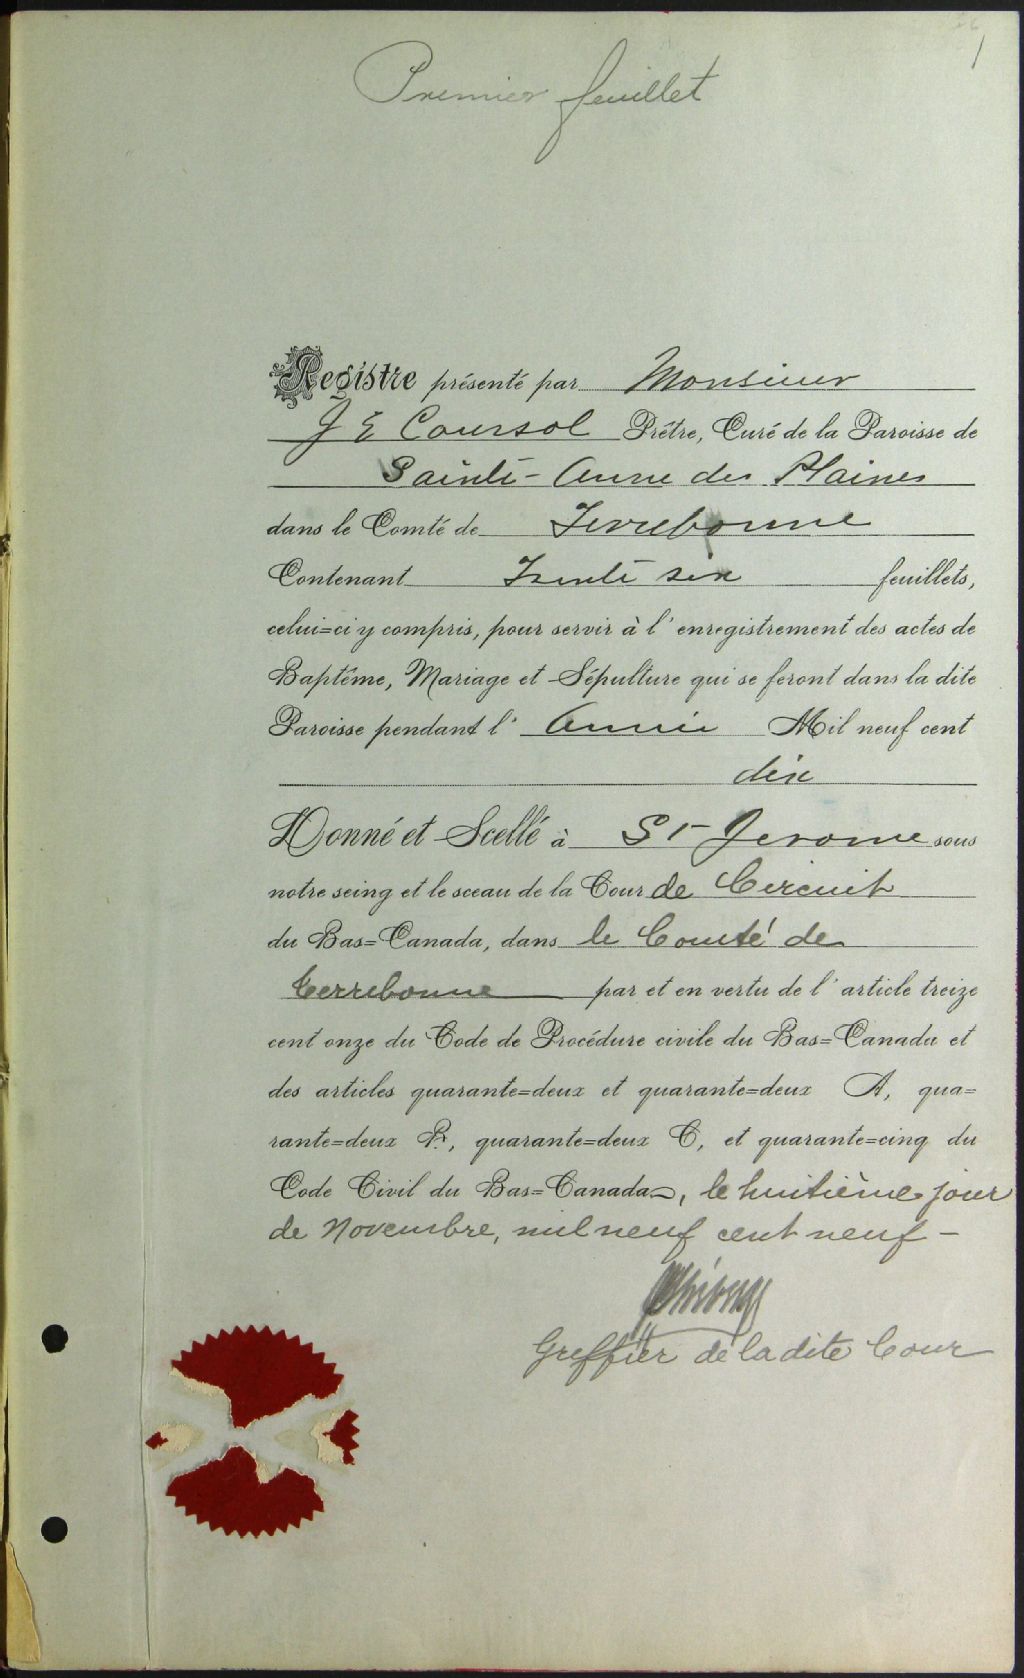 1
Premier feuillet
Registre présenté par Monsieur
J E Coursol Prêtre, Curé de la Paroisse de
Sainte-Anne des Plaines
dans le Comté de Terrebonne
Contenant Trente six feuillets,
celui=ci y compris, pour servir à l'enregistrement des actes de
Baptême, Mariage et Sépulture qui se feront dans la dite
Paroisse pendant l'Année Mil neuf cent
dix
Donné et Scellé à St Jerome sous
notre seing et le sceau de la Cour de Circuit
du Bas=Canada, dans le Comté de
Terrebonne par et en vertu de l'article treize
cent onze du Code de Procédure civile du Bas=Canada et
des articles quarante=deux et quarante=deux A, qua=
rante=deux B, quarante=deux C, et quarante=cinq du
Code Civil du Bas=Canada, le huitième jour
de Novembre, mil neuf cent neuf -
Greffier de la dite Cour